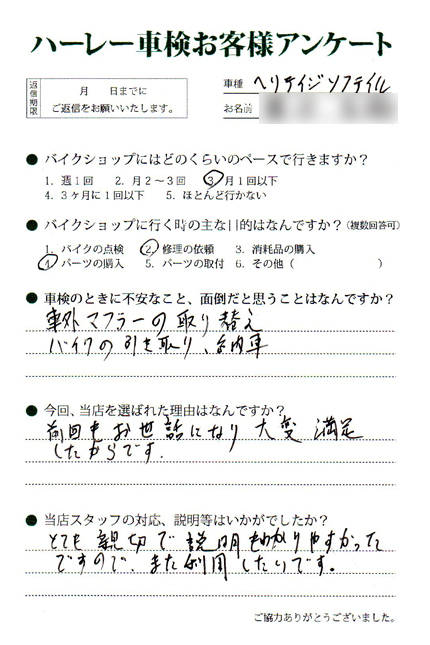 ハーレー車検お客様アンケート
返信期限
月 日までに
ご返信をお願いいたします。
車種 ヘリテイジソフテイル
お名前
● バイクショップにはどのくらいのペースで行きますか?
1. 週1回 2. 月2～3回 3. 月1回以下
4. 3ヶ月に1回以下 5. ほとんど行かない
● バイクショップに行く時の主な目的はなんですか?(複数回答可)
1. バイクの点検 2. 修理の依頼 3. 消耗品の購入
4. パーツの購入 5. パーツの取付 6. その他( )
● 車検のときに不安なこと、面倒だと思うことはなんですか?
車外マフラーの取り替え
バイクの引き取り、納車
● 今回、当店を選ばれた理由はなんですか?
前回もお世話になり大変満足
したからです.
● 当店スタッフの対応、説明等はいかがでしたか?
とても親切で説明もわかりやすかった
ですので、また利用したいです。
ご協力ありがとうございました。